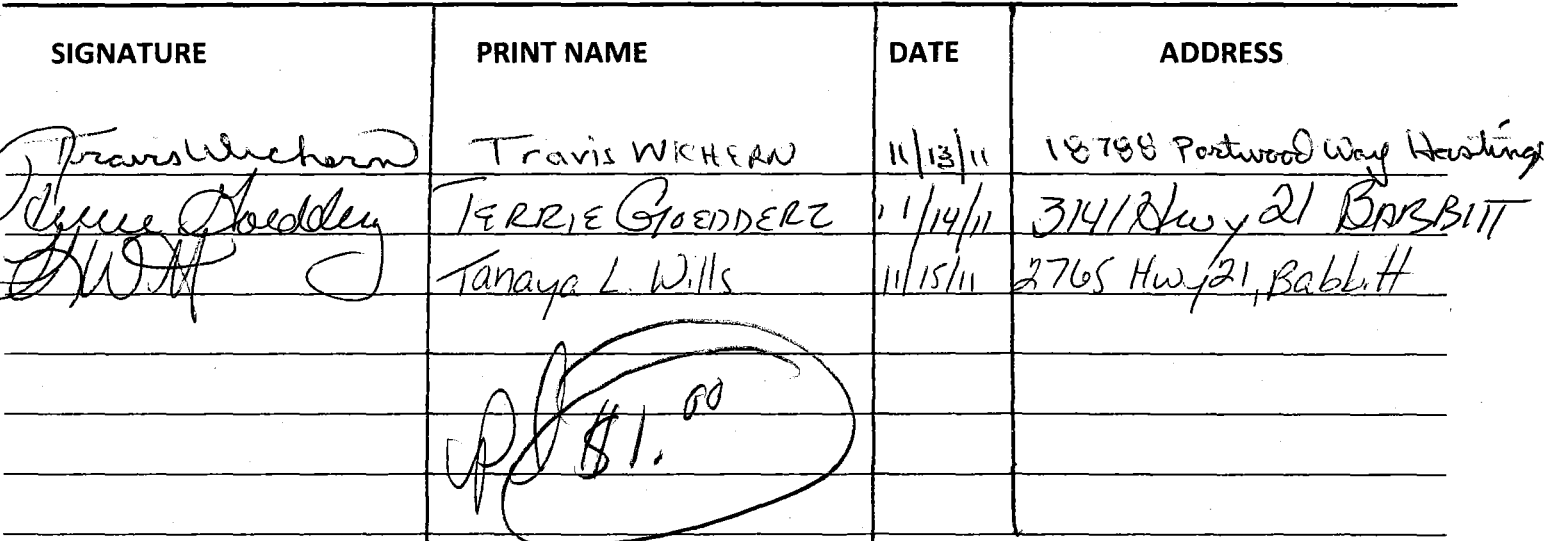 SIGNATURE PRINT NAME DATE ADDRESS
Travis Wichern Travis WICHERN 11/13/11 18788 Portwood Way Hastings
Terrie Goedderz TERRIE GOEDDERZ 11/14/11 3141 Hwy 21 BABBITT
Tanaya L. Wills 11/15/11 2765 Hwy 21, Babbitt
pd $1.00